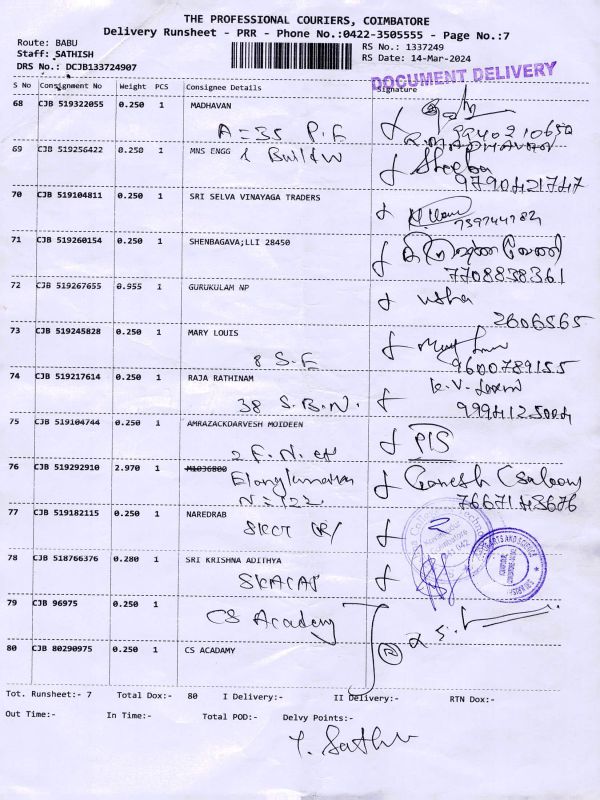 THE PROFESSIONAL COURIERS, COIMBATORE
Delivery Runsheet - PRR - Phone No.:0422-3505555 - Page No.:7
Route: BABU
Staff: SATHISH
DRS No.: DCJB133724907
RS No.: 1337249
RS Date: 14-Mar-2024
DOCUMENT DELIVERY
S No Consignment No Weight PCS Consignee Details Signature
68 CJB 519322055 0.250 1 MADHAVAN
A = 35 P.E 9940210650
R.MADHAVAN
69 CJB 519256422 0.250 1 MNS ENGG Sheeba
9790421747
70 CJB 519104811 0.250 1 SRI SELVA VINAYAGA TRADERS
71 CJB 519260154 0.250 1 SHENBAGAVA;LLI 28450
7708838361
72 CJB 519267655 0.955 1 GURUKULAM NP usha
2606565
73 CJB 519245828 0.250 1 MARY LOUIS
8 S.E 9600789155
74 CJB 519217614 0.250 1 RAJA RATHINAM K.V.
38 S.B.N. 9994125004
75 CJB 519104744 0.250 1 AMRAZACKDARVESH MOIDEEN
76 CJB 519292910 2.970 1 M1036800 Ganesh (saloon)
7667143676
77 CJB 519182115 0.250 1 NAREDRAB
SKCT
78 CJB 518766376 0.280 1 SRI KRISHNA ADITHYA
SKACAS
79 CJB 96975 0.250 1
CS Academy
80 CJB 80290975 0.250 1 CS ACADAMY
Tot. Runsheet:- 7 Total Dox:- 80 I Delivery:- II Delivery:- RTN Dox:-
Out Time:- In Time:- Total POD:- Delvy Points:-